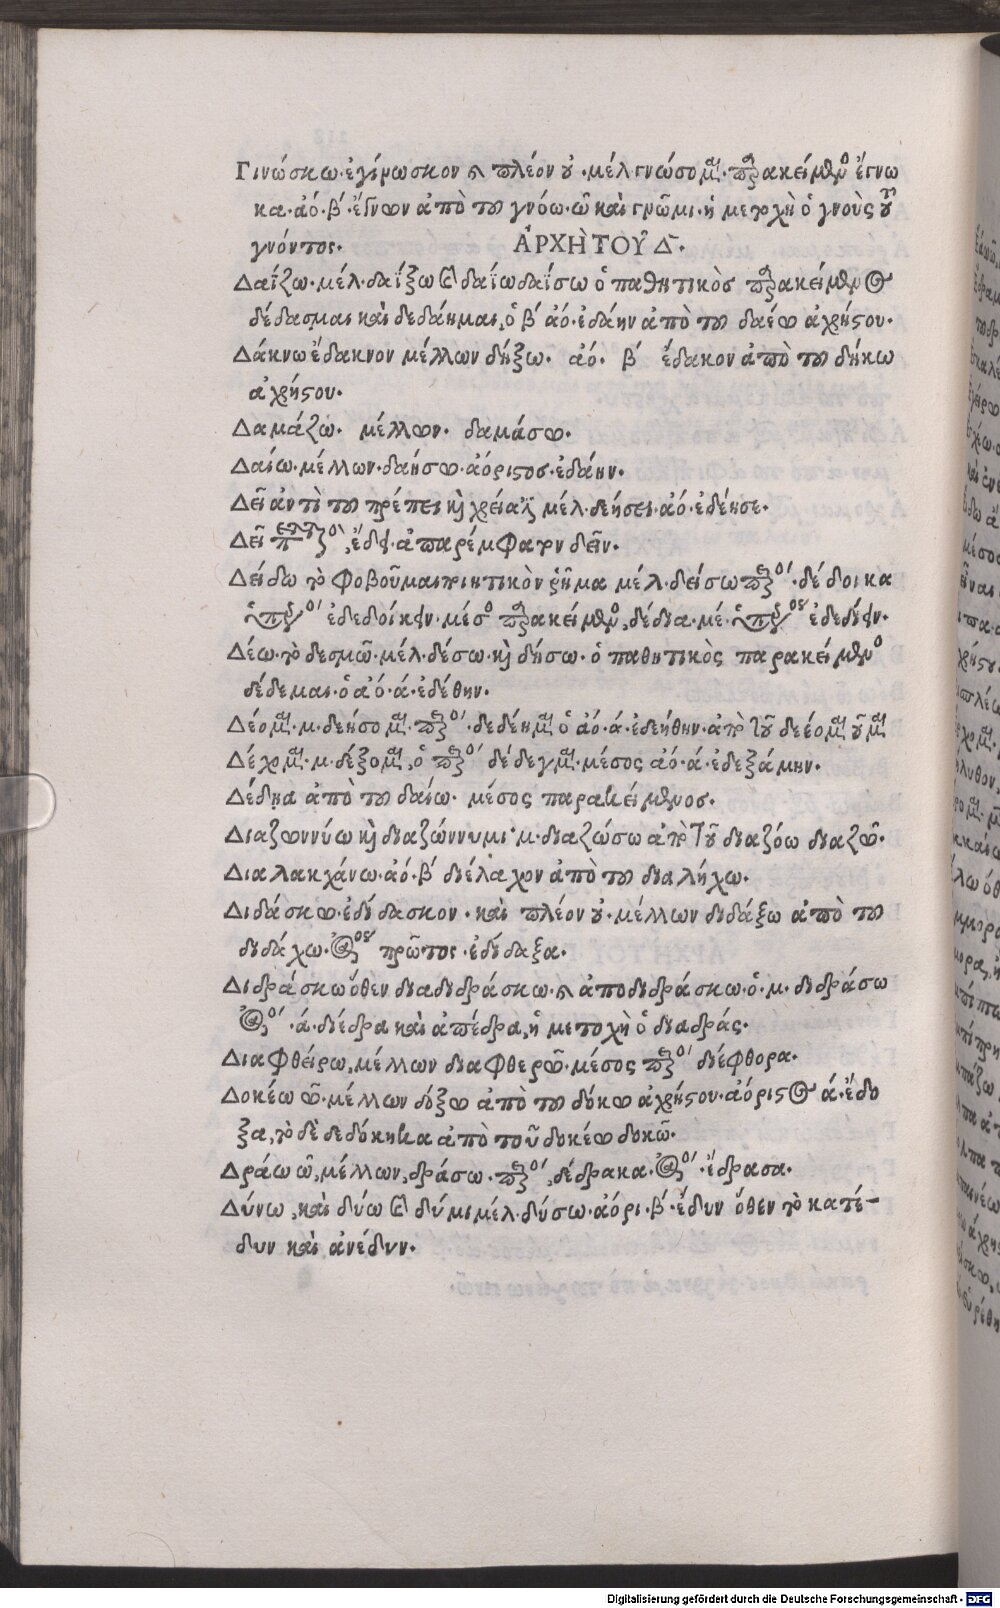 Γινώσκω·ἐγίνωσκον ϗ πλέον οὐ·μέλ γνώσομαι·παρακείμενος ἔγνω
κα·ἀό·β΄·ἔγνων ἀπὸ τοῦ γνόω·ῶ καὶ γνῶμι·ἡ μετοχὴ ὁ γνοὺς τοῦ
γνόντος. ἈΡΧῊ ΤΟΥ͂ Δ¯.
Δαΐζω·μέλ·δαΐξω καὶ δαΐω δαΐσω ὁ παθητικὸς παρακείμενος
δέδασμαι καὶ δεδάημαι, ὁ β΄ ἀό·ἐδάην ἀπὸ τοῦ δαέω ἀχρήστου.
Δάκνω ἔδακνον μέλλων δήξω. ἀό. β΄ ἔδακον ἀπὸ τοῦ δήκω
ἀχρήστου.
Δαμάζω. μέλλων. δαμάσω.
Δαίω·μέλλων·δαήσω·ἀόριστος·ἐδάην.
Δεῖ ἀντὶ τοῦ πρέπει καὶ χρεία μέλ·δεήσει·ἀό·ἐδέησε.
Δεῖ ἔδει·ἀπαρέμφατον δεῖν.
Δείδω τὸ φοβοῦμαι ποιητικὸν ῥῆμα μέλ·δείσω παρακείμενος·δέδοικα
ὁ ὑπερσυντέλικος ἐδεδοίκειν·μέσος παρακείμενος, δέδια·μέ·ὑπερσυντέλικος ἐδεδίειν.
Δέω·τὸ δεσμῶ·μέλ·δέσω·καὶ δήσω·ὁ παθητικὸς παρακείμενος
δέδεμαι·ὁ ἀό·ά·ἐδέθην.
Δέομαι·μ·δεήσομαι·παρακείμενος·δεδέημαι ὁ ἀό·ά·ἐδεήθην·ἀπὸ τοῦ δεέομαι οῦμαι
Δέχομαι·μ·δέξομαι, ὁ παρακείμενος δέδεγμαι·μέσος ἀό·ά·ἐδεξάμην.
Δέδηα ἀπὸ τοῦ δαίω· μέσος παρακείμενος.
Διαζωννύω καὶ διαζώννυμι·μ·διαζώσω ἀπὸ τοῦ διαζόω διαζῶ.
Διαλακχάνω·ἀό·β΄ διέλαχον ἀπὸ τοῦ διαλήχω.
Διδάσκω·ἐδίδασκον·καὶ πλέον οὐ·μέλλων διδάξω ἀπὸ τοῦ
διδάχω·ἀόριστος πρῶτος·ἐδίδαξα.
Διδράσκω ὅθεν διαδιδράσκω·ϗ ἀποδιδράσκω·ὁ·μ·διδράσω
ἀόριστος·ά·διέδρα καὶ ἀπέδρα, ἡ μετοχὴ ὁ διαδράς.
Διαφθείρω, μέλλων διαφθερῶ·μέσος παρακείμενος διέφθορα.
Δοκέω ῶ·μέλλων δόξω ἀπὸ τοῦ δόκω ἀχρήστου·ἀόριστος ά·ἔδο
ξα, τὸ δὲ δεδόκηκα ἀπὸ τοῦ δοκέω δοκῶ.
Δράω ῶ, μέλλων, δράσω·παρακείμενος, δέδρακα·ἀόριστος·ἔδρασα.
Δύνω, καὶ δύω καὶ δύμι μέλ·δύσω·ἀόρι·β΄·ἔδυν ὅθεν τὸ κατέ-
δυν καὶ ἀνέδυν.
Digitalisierung gefördert durch die Deutsche Forschungsgemeinschaft - DFG